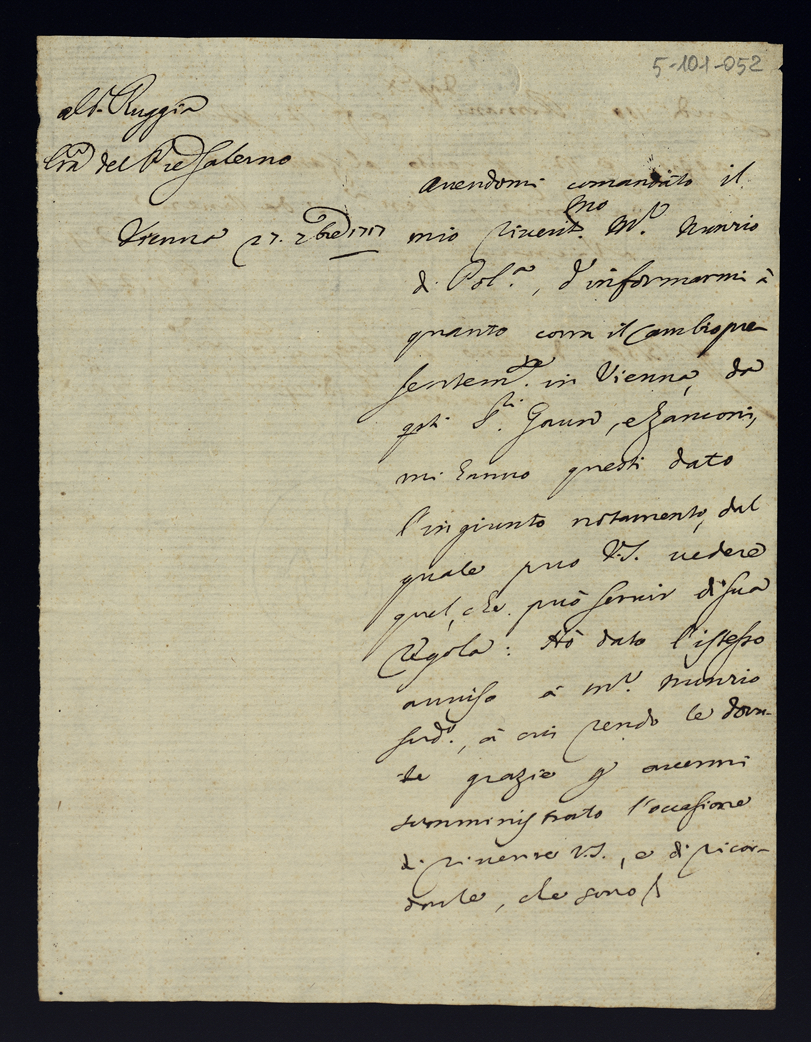 5-101-052
al S.r Ruggia
del Pre Salerno
Vienna 27. 7bre 1717
avendomi comandato il
mio riverit.mo M.r Nunzio
di Pol.a, d'informarmi à
quanto corra il Cambio pre-
sentem.te in Vienna, da
qsti S.ri e Zanconi,
mi hanno questi dato
l'ingiunto notamento, dal
quale può V.S. vedere
quel, che può servir di sua
regola: Hò dato l'istesso
avviso à M.r Nunzio
sud.o, à cui rendo le dovu-
te grazie p avermi
somministrato l'occasione
di riverire V.S., e di ricor-
darle, che sono